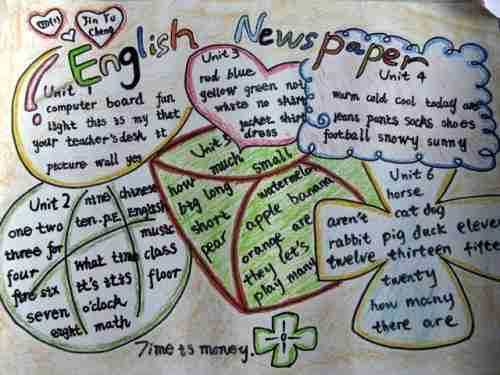 Jin Yu
Cheng
English Newspaper
Unit 1
computer board fun
light this is my that
your teacher's desk it
picture wall yes
Unit 3
red blue
yellow green not
white no shirt
jacket skirt
dress
Unit 4
warm cold cool today are
jeans pants socks shoes
football snowy sunny
Unit 5
how much small
big long
short
pear
watermelon
apple banana
orange are
they let's
play many
Unit 2
one two
three for
four
five six
seven
eight
nine
ten P.E
what time
it's it is
o'clock
math
chinese
English
music
class
floor
Unit 6
horse
cat dog
aren't
rabbit pig duck eleven
twelve thirteen
twenty
how many
there are
Time is money.